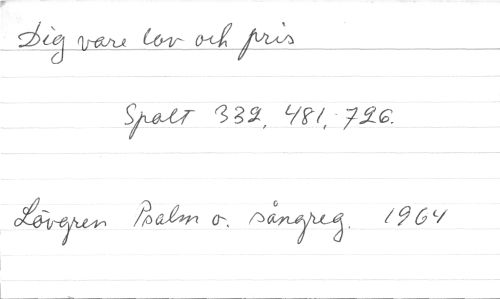 Dig vare lov och pris
Spalt 332, 481, 726.
Lövgren Psalm o. sångreg. 1964